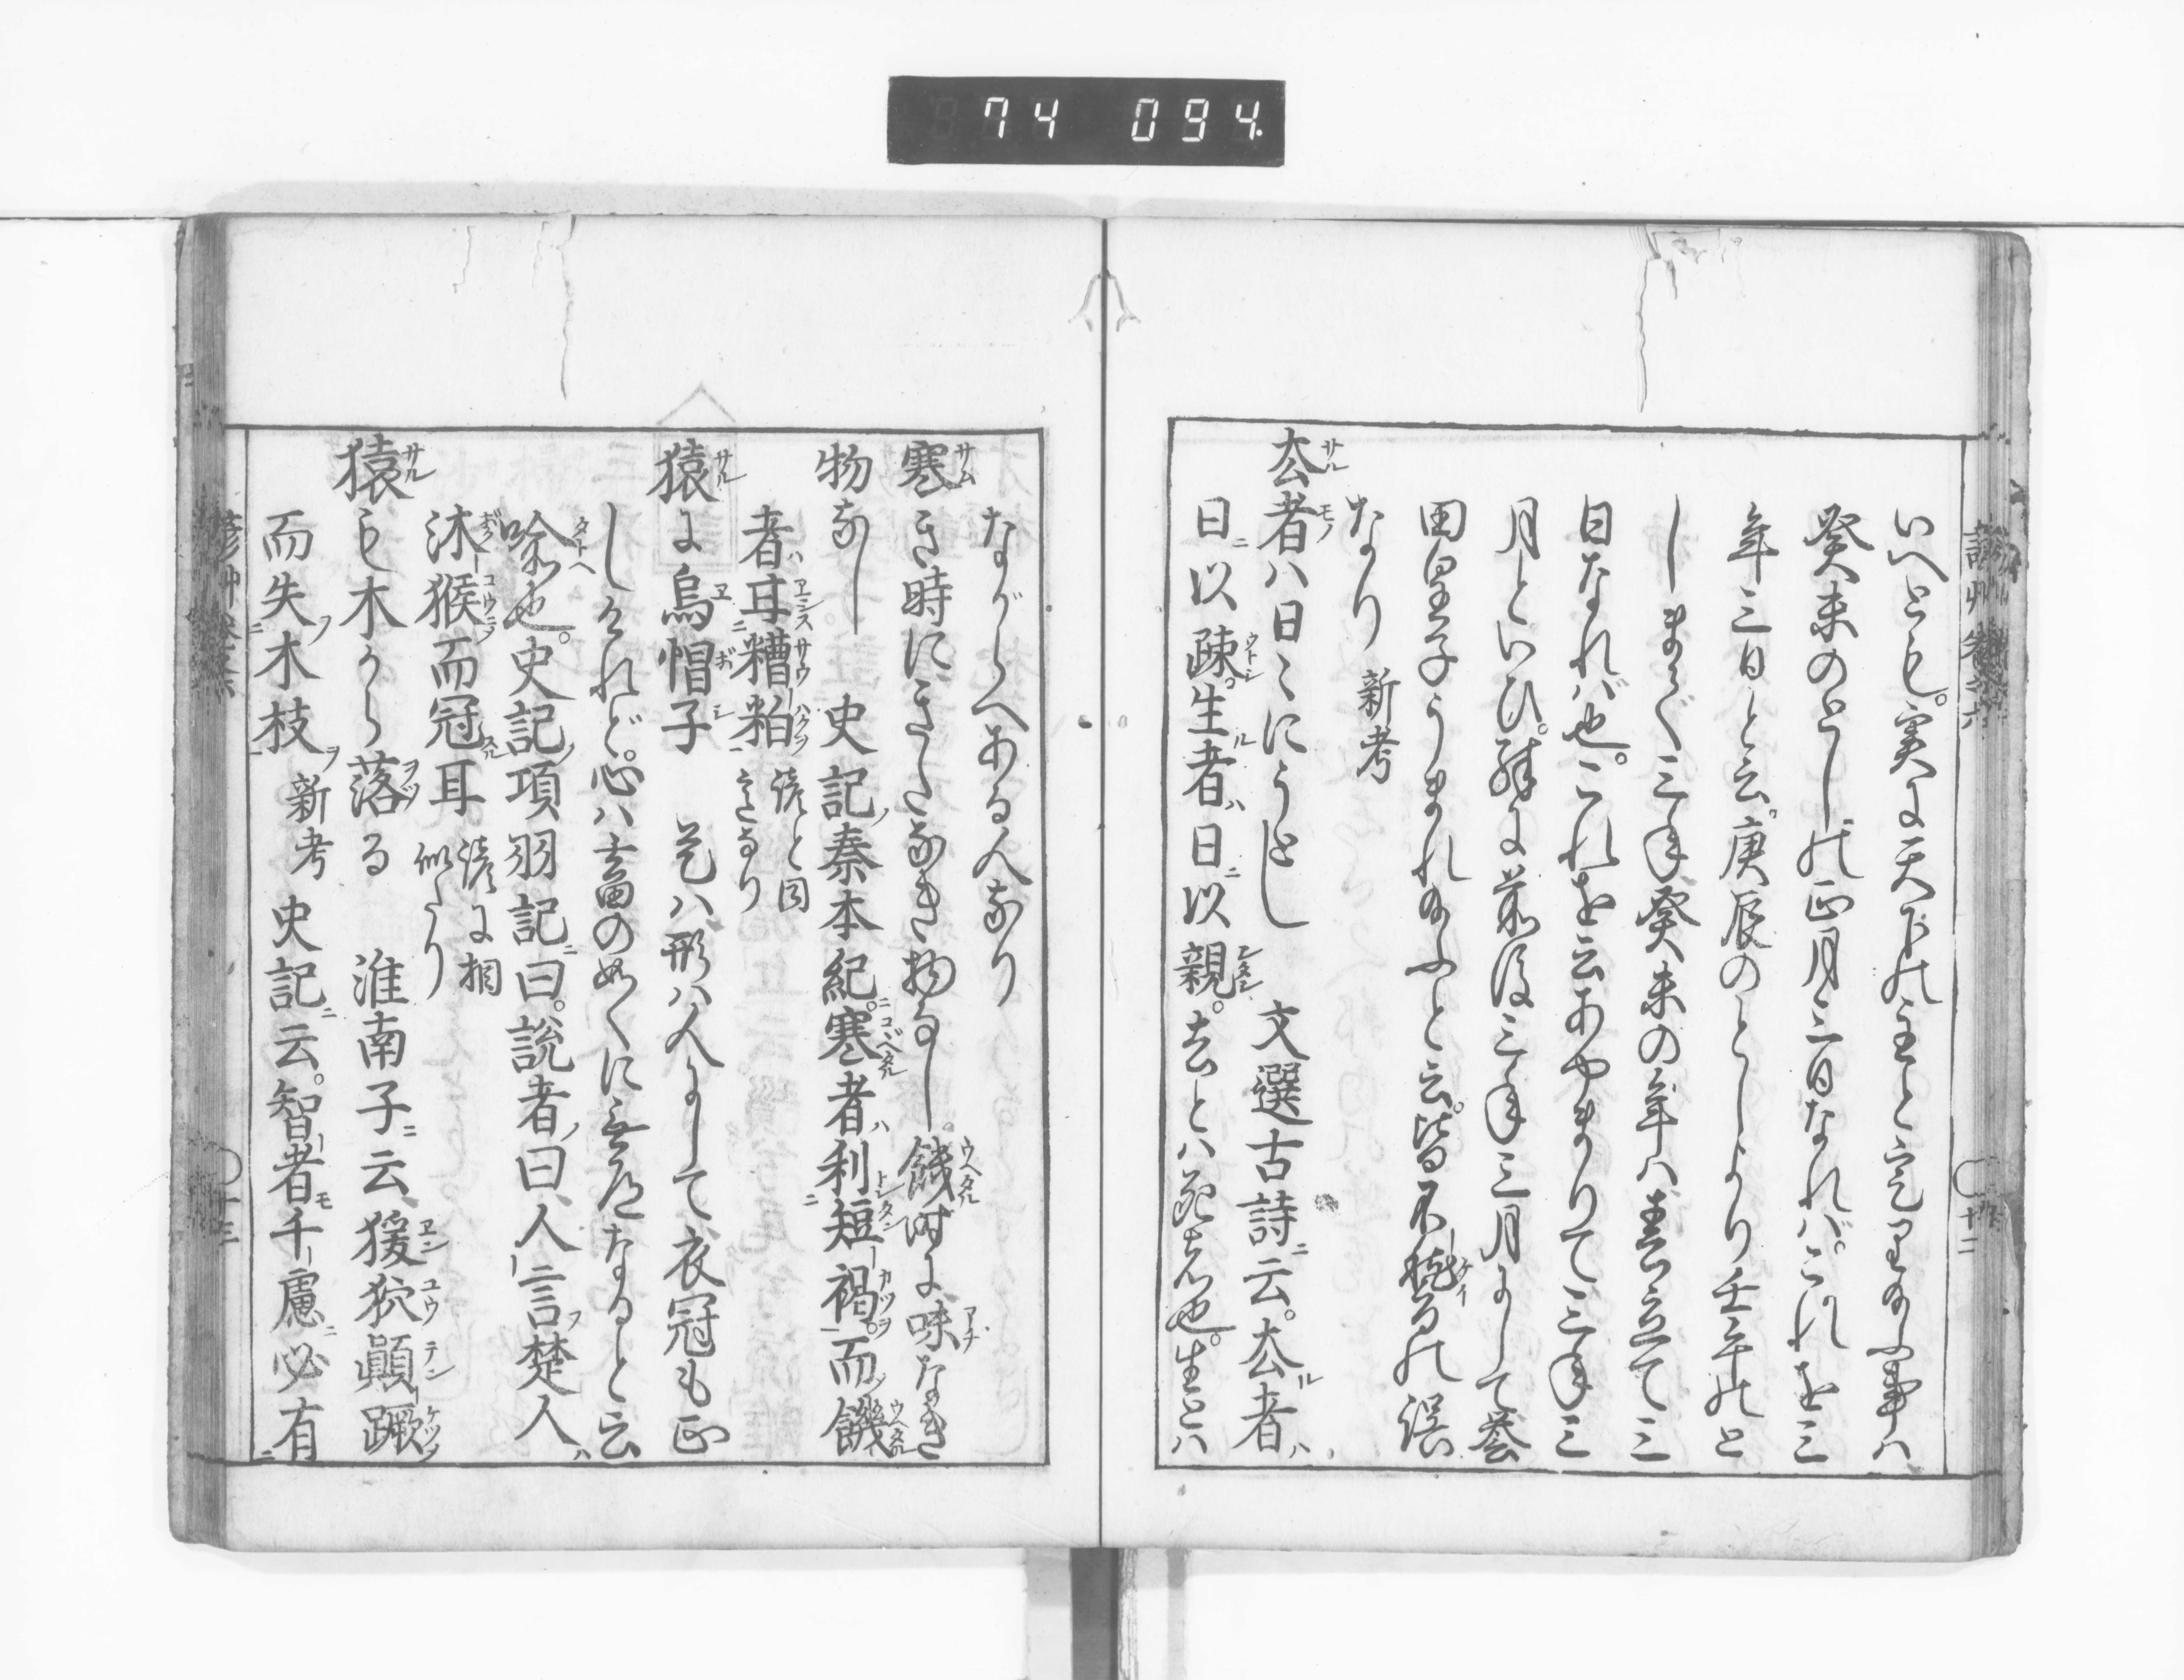 74 094.
いへとも。実に天下の主と定り給ふ事ハ
癸未のとしの正月三日なれバ。これを三
年三日と云。庚辰のとしより壬午のと
しまで三年癸未の年ハ春立て三
日なれバ也。これを云あやまりて三年三
月といひ。殊に前後三年三月にして誉
田皇子うまれ給ふと云。皆不稽るの誤
なり 新考
厺者ハ日〻にうとし 文選古詩ニ云。厺者ハ
日ニ以疎。生者ハ日ニ以親。去とハ死去也。生とハ
ながらへある人なり
寒き時にきたなき物なし。餓時に味なき
物なし 史記ノ秦本紀。寒者ハ利短褐。而饑
者ハ甘糟粕 諺と同
意なり
猿に烏帽子 是ハ形ハ人にして衣冠も正
しけれど。心ハ畜の如くに無道なると云
喩也。史記ノ項羽記ニ曰。説者ノ曰、人言フ楚人ハ
沐猴而冠耳 諺に相
似たり
猿も木から落る 淮南子ニ云、猨狖顚蹶
而失木枝 新考 史記ニ云。智者モ千慮ニ必有